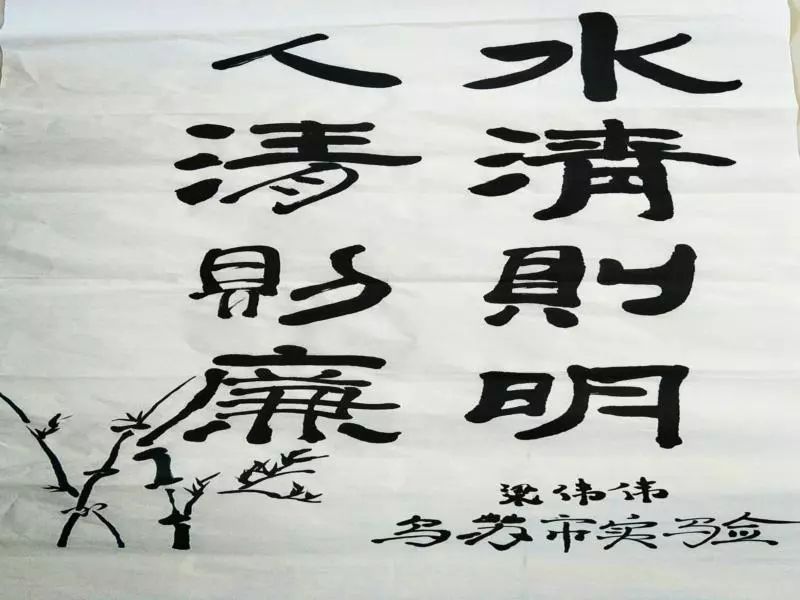 水清則明
人清則廉
梁伟伟
乌苏市实验